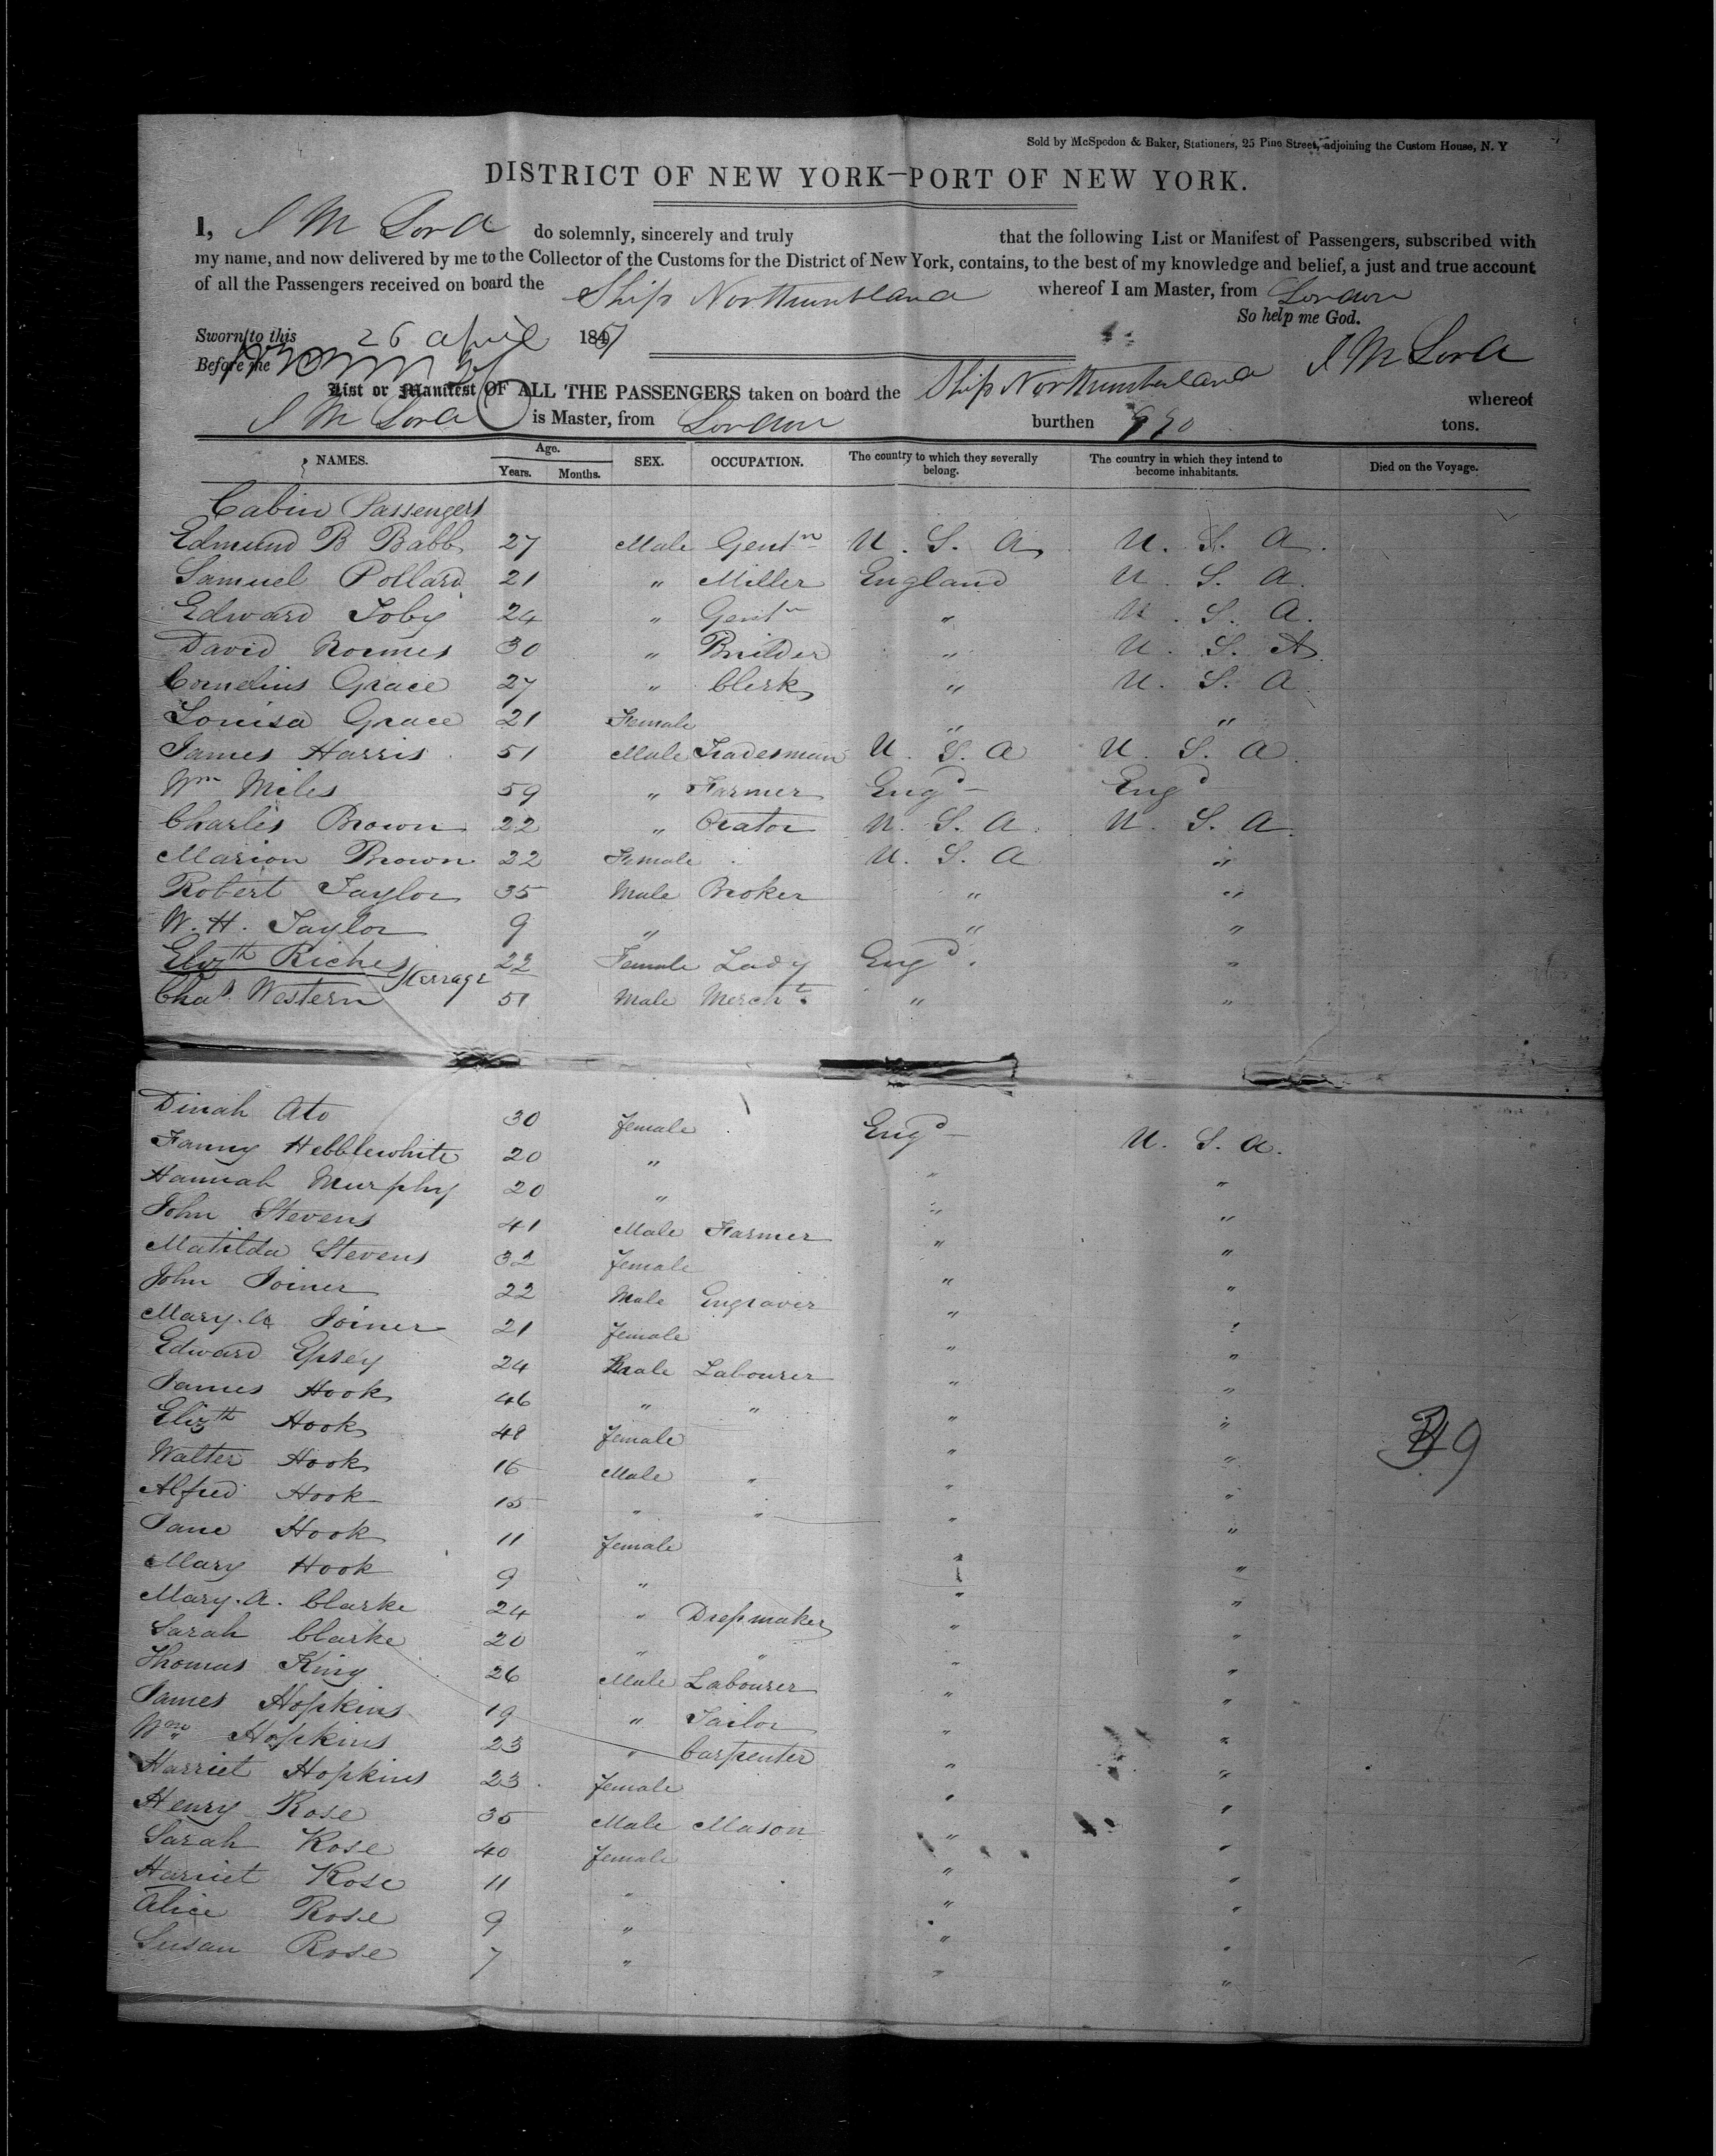 Sold by McSpedon & Baker, Stationers, 25 Pine Street, adjoining the Custom House, N. Y
DISTRICT OF NEW YORK—PORT OF NEW YORK.
I, J M Lord do solemnly, sincerely and truly that the following List or Manifest of Passengers, subscribed with
my name, and now delivered by me to the Collector of the Customs for the District of New York, contains, to the best of my knowledge and belief, a just and true account
of all the Passengers received on board the Ship Northumberland whereof I am Master, from London
So help me God.
Sworn to this 26 April 184
Before me J M Lord
List or Manifest OF ALL THE PASSENGERS taken on board the Ship Northumberland whereof
J M Lord is Master, from London burthen 990 tons.
NAMES. Age. Years. Months. SEX. OCCUPATION. The country to which they severally belong. The country in which they intend to become inhabitants. Died on the Voyage.
Cabin Passengers
Edmund B Babb 27 Male Gentn U. S. A. U. S. A.
Samuel Pollard 21 " Miller England U. S. A.
Edward Toby 24 " Gentn " U. S. A.
David 30 " Builder " U. S. A.
Cornelius Grace 27 " Clerk " U. S. A.
Louisa Grace 21 Female " "
James Harris 51 Male Tradesman U. S. A U. S. A.
Wm Miles 59 " Farmer Engd Engd
Charles Brown 22 " Orator U. S. A. U. S. A.
Marion Brown 22 Female U. S. A "
Robert Taylor 35 Male Broker " "
W. H. Taylor 9 " " "
Elizth Riches 22 Female Lady Engd. "
Steerage
Chas. Western 51 Male Mercht. " "
Dinah Ato 30 female Engd U. S. A.
Fanny Hebblewhite 20 " " "
Hannah Murphy 20 " " "
John Stevens 41 Male Farmer " "
Matilda Stevens 32 female " "
John Joiner 22 Male Engraver " "
Mary. A Joiner 21 female " "
Edward Epsey 24 Male Labourer " "
James Hook 46 " " " "
Elizth Hook 48 female " "
Walter Hook 16 Male " " "
Alfred Hook 15 " " " "
Jane Hook 11 female " "
Mary Hook 9 " " "
Mary. A. Clarke 24 " Dressmaker " "
Sarah Clarke 20 " " " "
Thomas King 26 Male Labourer " "
James Hopkins 19 " Tailor " "
Wm Hopkins 23 " Carpenter " "
Harriet Hopkins 23 female " "
Henry Rose 35 Male Mason " "
Sarah Rose 40 female " "
Harriet Rose 11 " " "
Alice Rose 9 " " "
Susan Rose 7 " " "